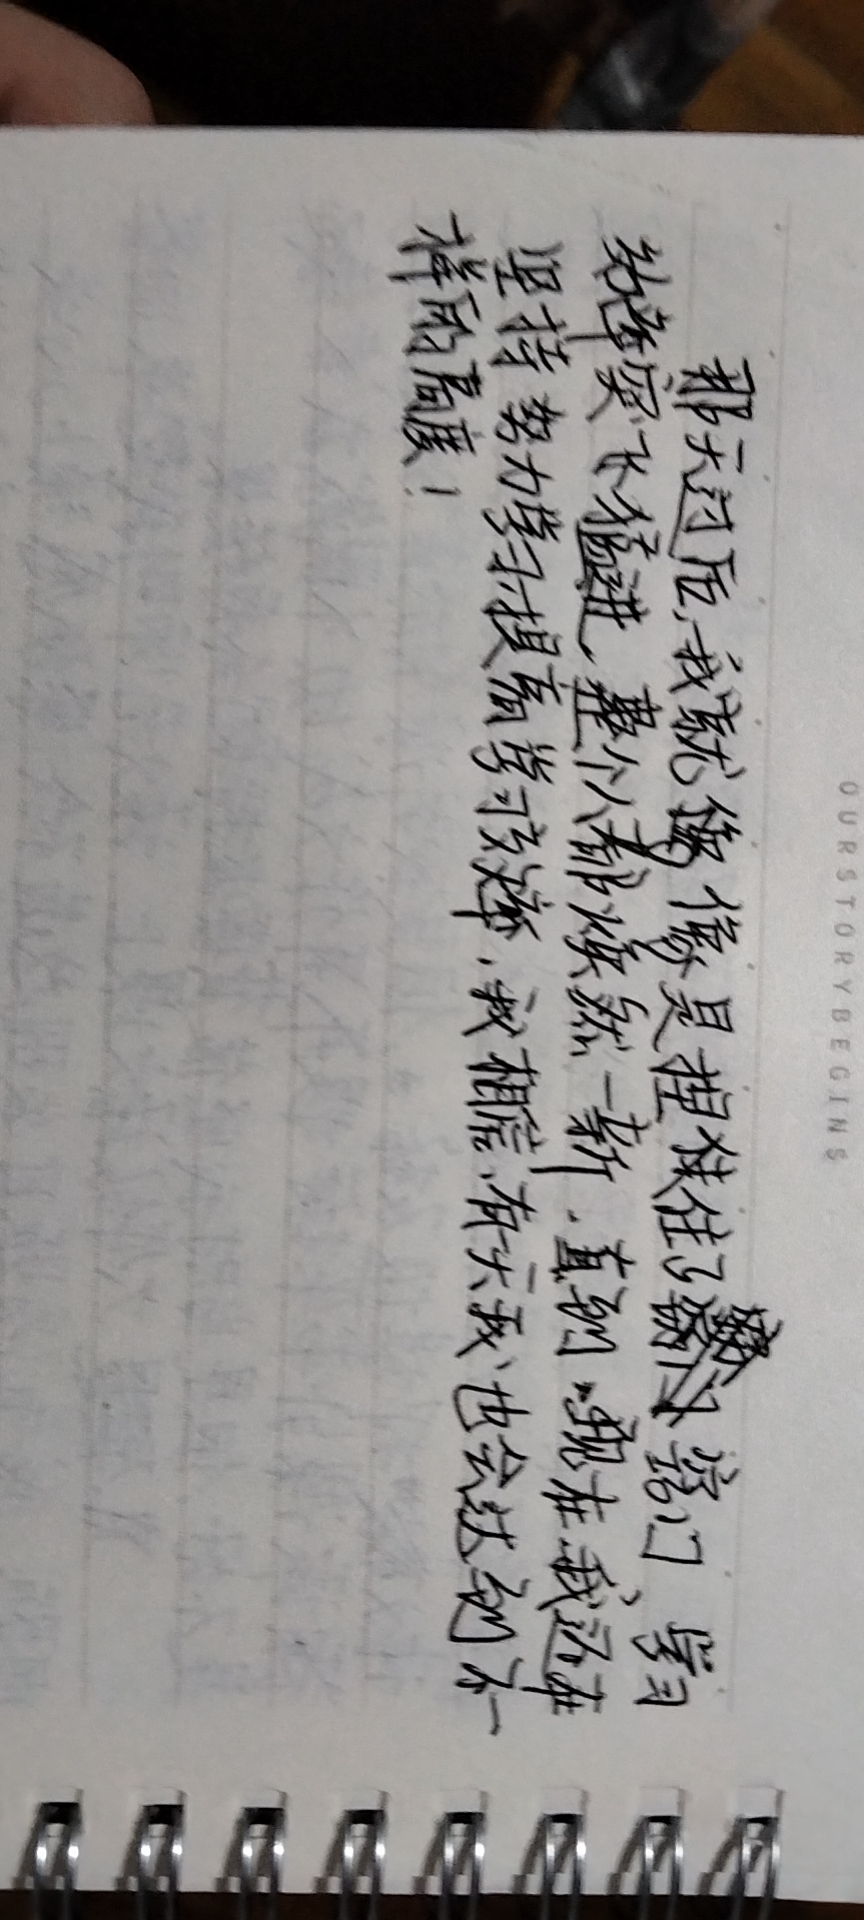 OURSTORYBEGINS
那天过后,我就像是捏续住了窍门 学习
效率突飞猛进、整个人都焕然一新.直到现在我还在
坚持努力学习提高学习效率,我相信,有一天我也会达到不一
样的高度!